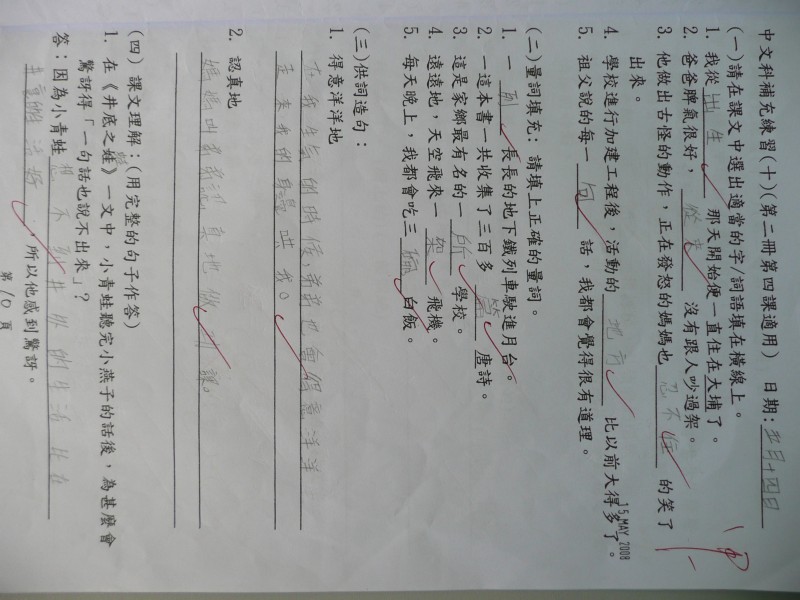 中文科補充練習(十)(第二冊第四課適用) 日期:五月十四日
(一)請在課文中選出適當的字/詞語填在橫線上。
1. 我從 出生 那天開始便一直住在大埔了。
2. 爸爸脾氣很好, 從未 沒有跟人吵過架。
3. 他做出古怪的動作,正在發怒的媽媽也 忍不住 的笑了
出來。
4. 學校進行加建工程後,活動的 地方 比以前大得多了。
15 MAY 2008
5. 祖父說的每一 句 話,我都會覺得很有道理。
(二)量詞填充:請填上正確的量詞。
1. 一 長長的地下鐵列車駛進月台。
2. 一這本書一共收集了三百多 唐詩。
3. 這是家鄉最有名的一 所 學校。
4. 遠遠地,天空飛來一 架 飛機。
5. 每天晚上,我都會吃三 碗 白飯。
(三)供詞造句:
1. 得意洋洋地
在我生氣的時候,弟弟也會得意洋洋
走來我的身邊哄我。
2. 認真地
媽媽叫弟弟認真地做功課。
(四) 課文理解:(用完整的句子作答)
1. 在《井底之蛙》一文中,小青蛙聽完小燕子的話後,為甚麼會
驚訝得「一句話也說不出來」?
答:因為小青蛙 想不到井外的生活比在
井裏還好 ,所以他感到驚訝。
第10頁